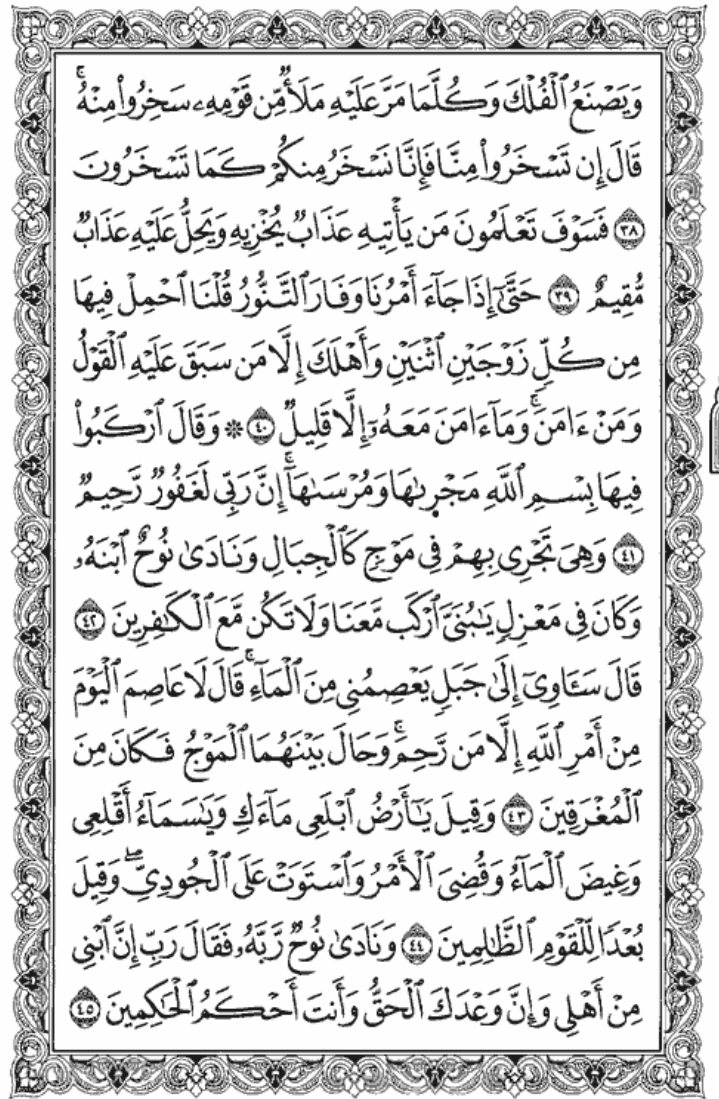 وَيَصْنَعُ ٱلْفُلْكَ وَكُلَّمَا مَرَّ عَلَيْهِ مَلَأٌ مِّن قَوْمِهِۦ سَخِرُوا۟ مِنْهُ ۚ
قَالَ إِن تَسْخَرُوا۟ مِنَّا فَإِنَّا نَسْخَرُ مِنكُمْ كَمَا تَسْخَرُونَ
٣٨ فَسَوْفَ تَعْلَمُونَ مَن يَأْتِيهِ عَذَابٌ يُخْزِيهِ وَيَحِلُّ عَلَيْهِ عَذَابٌ
مُّقِيمٌ ٣٩ حَتَّىٰٓ إِذَا جَآءَ أَمْرُنَا وَفَارَ ٱلتَّنُّورُ قُلْنَا ٱحْمِلْ فِيهَا
مِن كُلٍّ زَوْجَيْنِ ٱثْنَيْنِ وَأَهْلَكَ إِلَّا مَن سَبَقَ عَلَيْهِ ٱلْقَوْلُ
وَمَنْ ءَامَنَ ۚ وَمَآ ءَامَنَ مَعَهُۥٓ إِلَّا قَلِيلٌ ٤٠ ۞ وَقَالَ ٱرْكَبُوا۟
فِيهَا بِسْمِ ٱللَّهِ مَجْر۪ىٰهَا وَمُرْسَىٰهَآ ۚ إِنَّ رَبِّى لَغَفُورٌ رَّحِيمٌ
٤١ وَهِىَ تَجْرِى بِهِمْ فِى مَوْجٍ كَٱلْجِبَالِ وَنَادَىٰ نُوحٌ ٱبْنَهُۥ
وَكَانَ فِى مَعْزِلٍ يَـٰبُنَىَّ ٱرْكَب مَّعَنَا وَلَا تَكُن مَّعَ ٱلْكَـٰفِرِينَ ٤٢
قَالَ سَـَٔاوِىٓ إِلَىٰ جَبَلٍ يَعْصِمُنِى مِنَ ٱلْمَآءِ ۚ قَالَ لَا عَاصِمَ ٱلْيَوْمَ
مِنْ أَمْرِ ٱللَّهِ إِلَّا مَن رَّحِمَ ۚ وَحَالَ بَيْنَهُمَا ٱلْمَوْجُ فَكَانَ مِنَ
ٱلْمُغْرَقِينَ ٤٣ وَقِيلَ يَـٰٓأَرْضُ ٱبْلَعِى مَآءَكِ وَيَـٰسَمَآءُ أَقْلِعِى
وَغِيضَ ٱلْمَآءُ وَقُضِىَ ٱلْأَمْرُ وَٱسْتَوَتْ عَلَى ٱلْجُودِىِّ ۖ وَقِيلَ
بُعْدًا لِّلْقَوْمِ ٱلظَّـٰلِمِينَ ٤٤ وَنَادَىٰ نُوحٌ رَّبَّهُۥ فَقَالَ رَبِّ إِنَّ ٱبْنِى
مِنْ أَهْلِى وَإِنَّ وَعْدَكَ ٱلْحَقُّ وَأَنتَ أَحْكَمُ ٱلْحَـٰكِمِينَ ٤٥